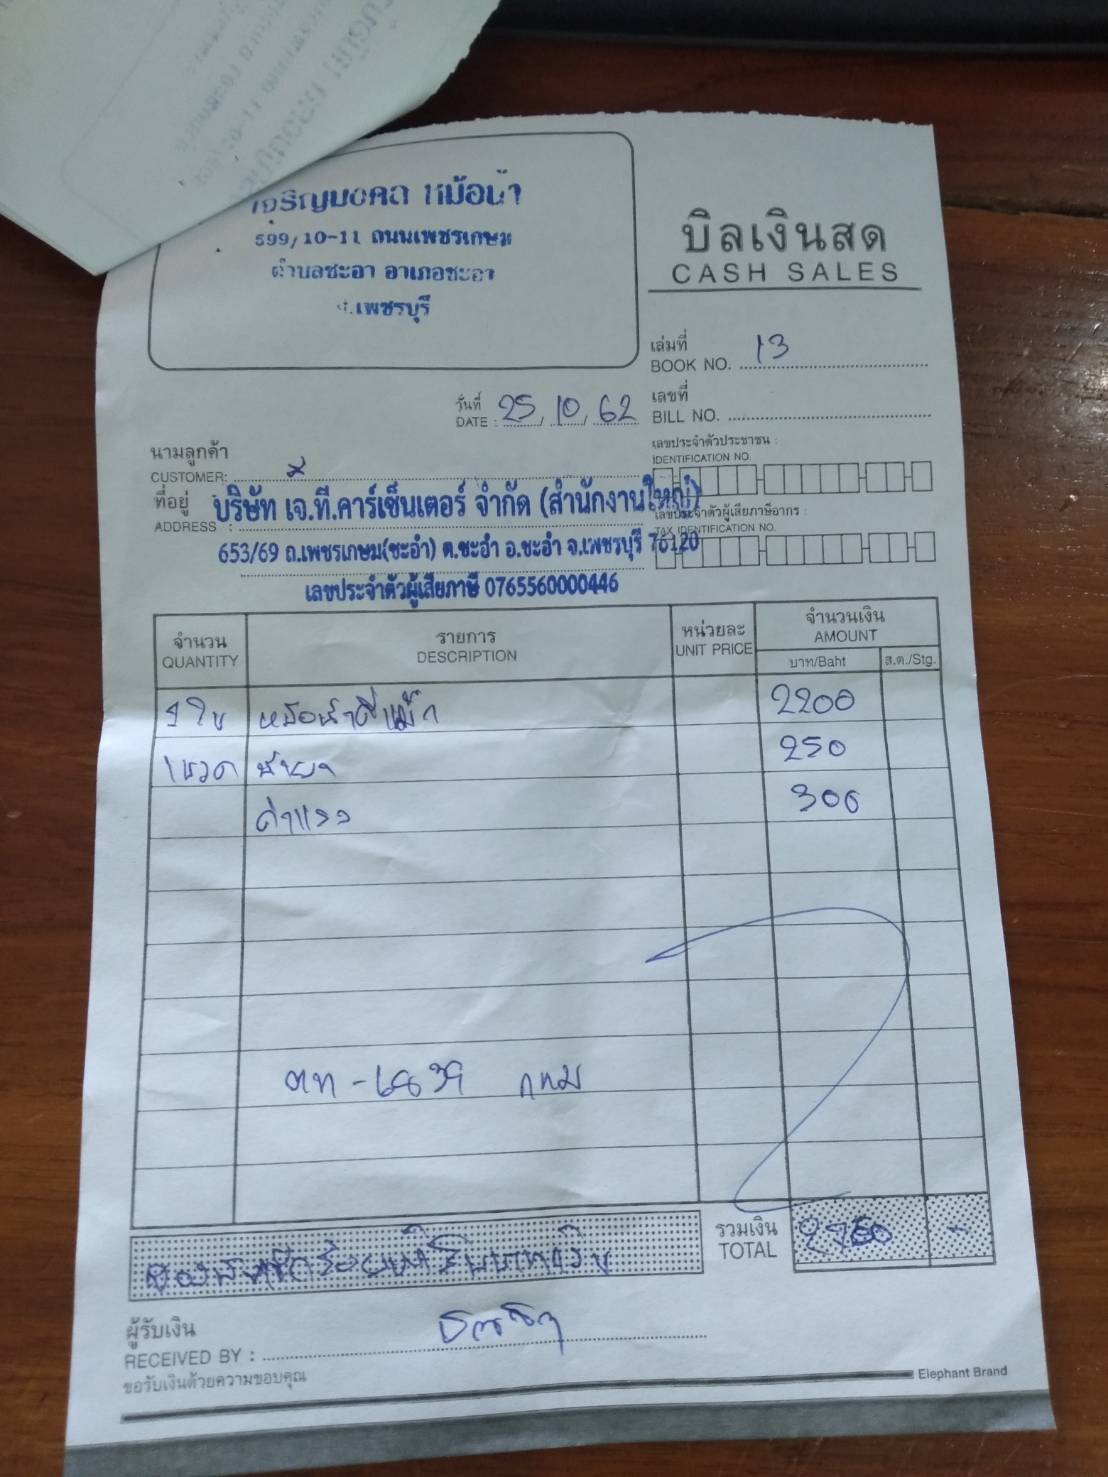 เจริญมงคล หม้อน้ำ
599/10-11 ถนนเพชรเกษม
ตำบลชะอำ อำเภอชะอำ
จ.เพชรบุรี
บิลเงินสด
CASH SALES
เล่มที่
BOOK NO. 13
วันที่
DATE : 25, 10, 62
เลขที่
BILL NO.
เลขประจำตัวประชาชน :
IDENTIFICATION NO.
นามลูกค้า
CUSTOMER:
ที่อยู่
ADDRESS :
บริษัท เจ.ที.คาร์เซ็นเตอร์ จำกัด (สำนักงานใหญ่)
เลขประจำตัวผู้เสียภาษีอากร :
TAX IDENTIFICATION NO.
653/69 ถ.เพชรเกษม(ชะอำ) ต.ชะอำ อ.ชะอำ จ.เพชรบุรี 76120
เลขประจำตัวผู้เสียภาษี 0765560000446
จำนวน
QUANTITY
รายการ
DESCRIPTION
หน่วยละ
UNIT PRICE
จำนวนเงิน
AMOUNT
บาท/Baht ส.ต./Stg.
1 ใบ หม้อน้ำดีแม็ก 2200
1 ขวด น้ำยา 250
ค่าแรง 300
กทม
รวมเงิน
TOTAL 2750 -
สองพันเจ็ดร้อยห้าสิบบาทถ้วน
ผู้รับเงิน
RECEIVED BY :
ขอรับเงินด้วยความขอบคุณ
Elephant Brand